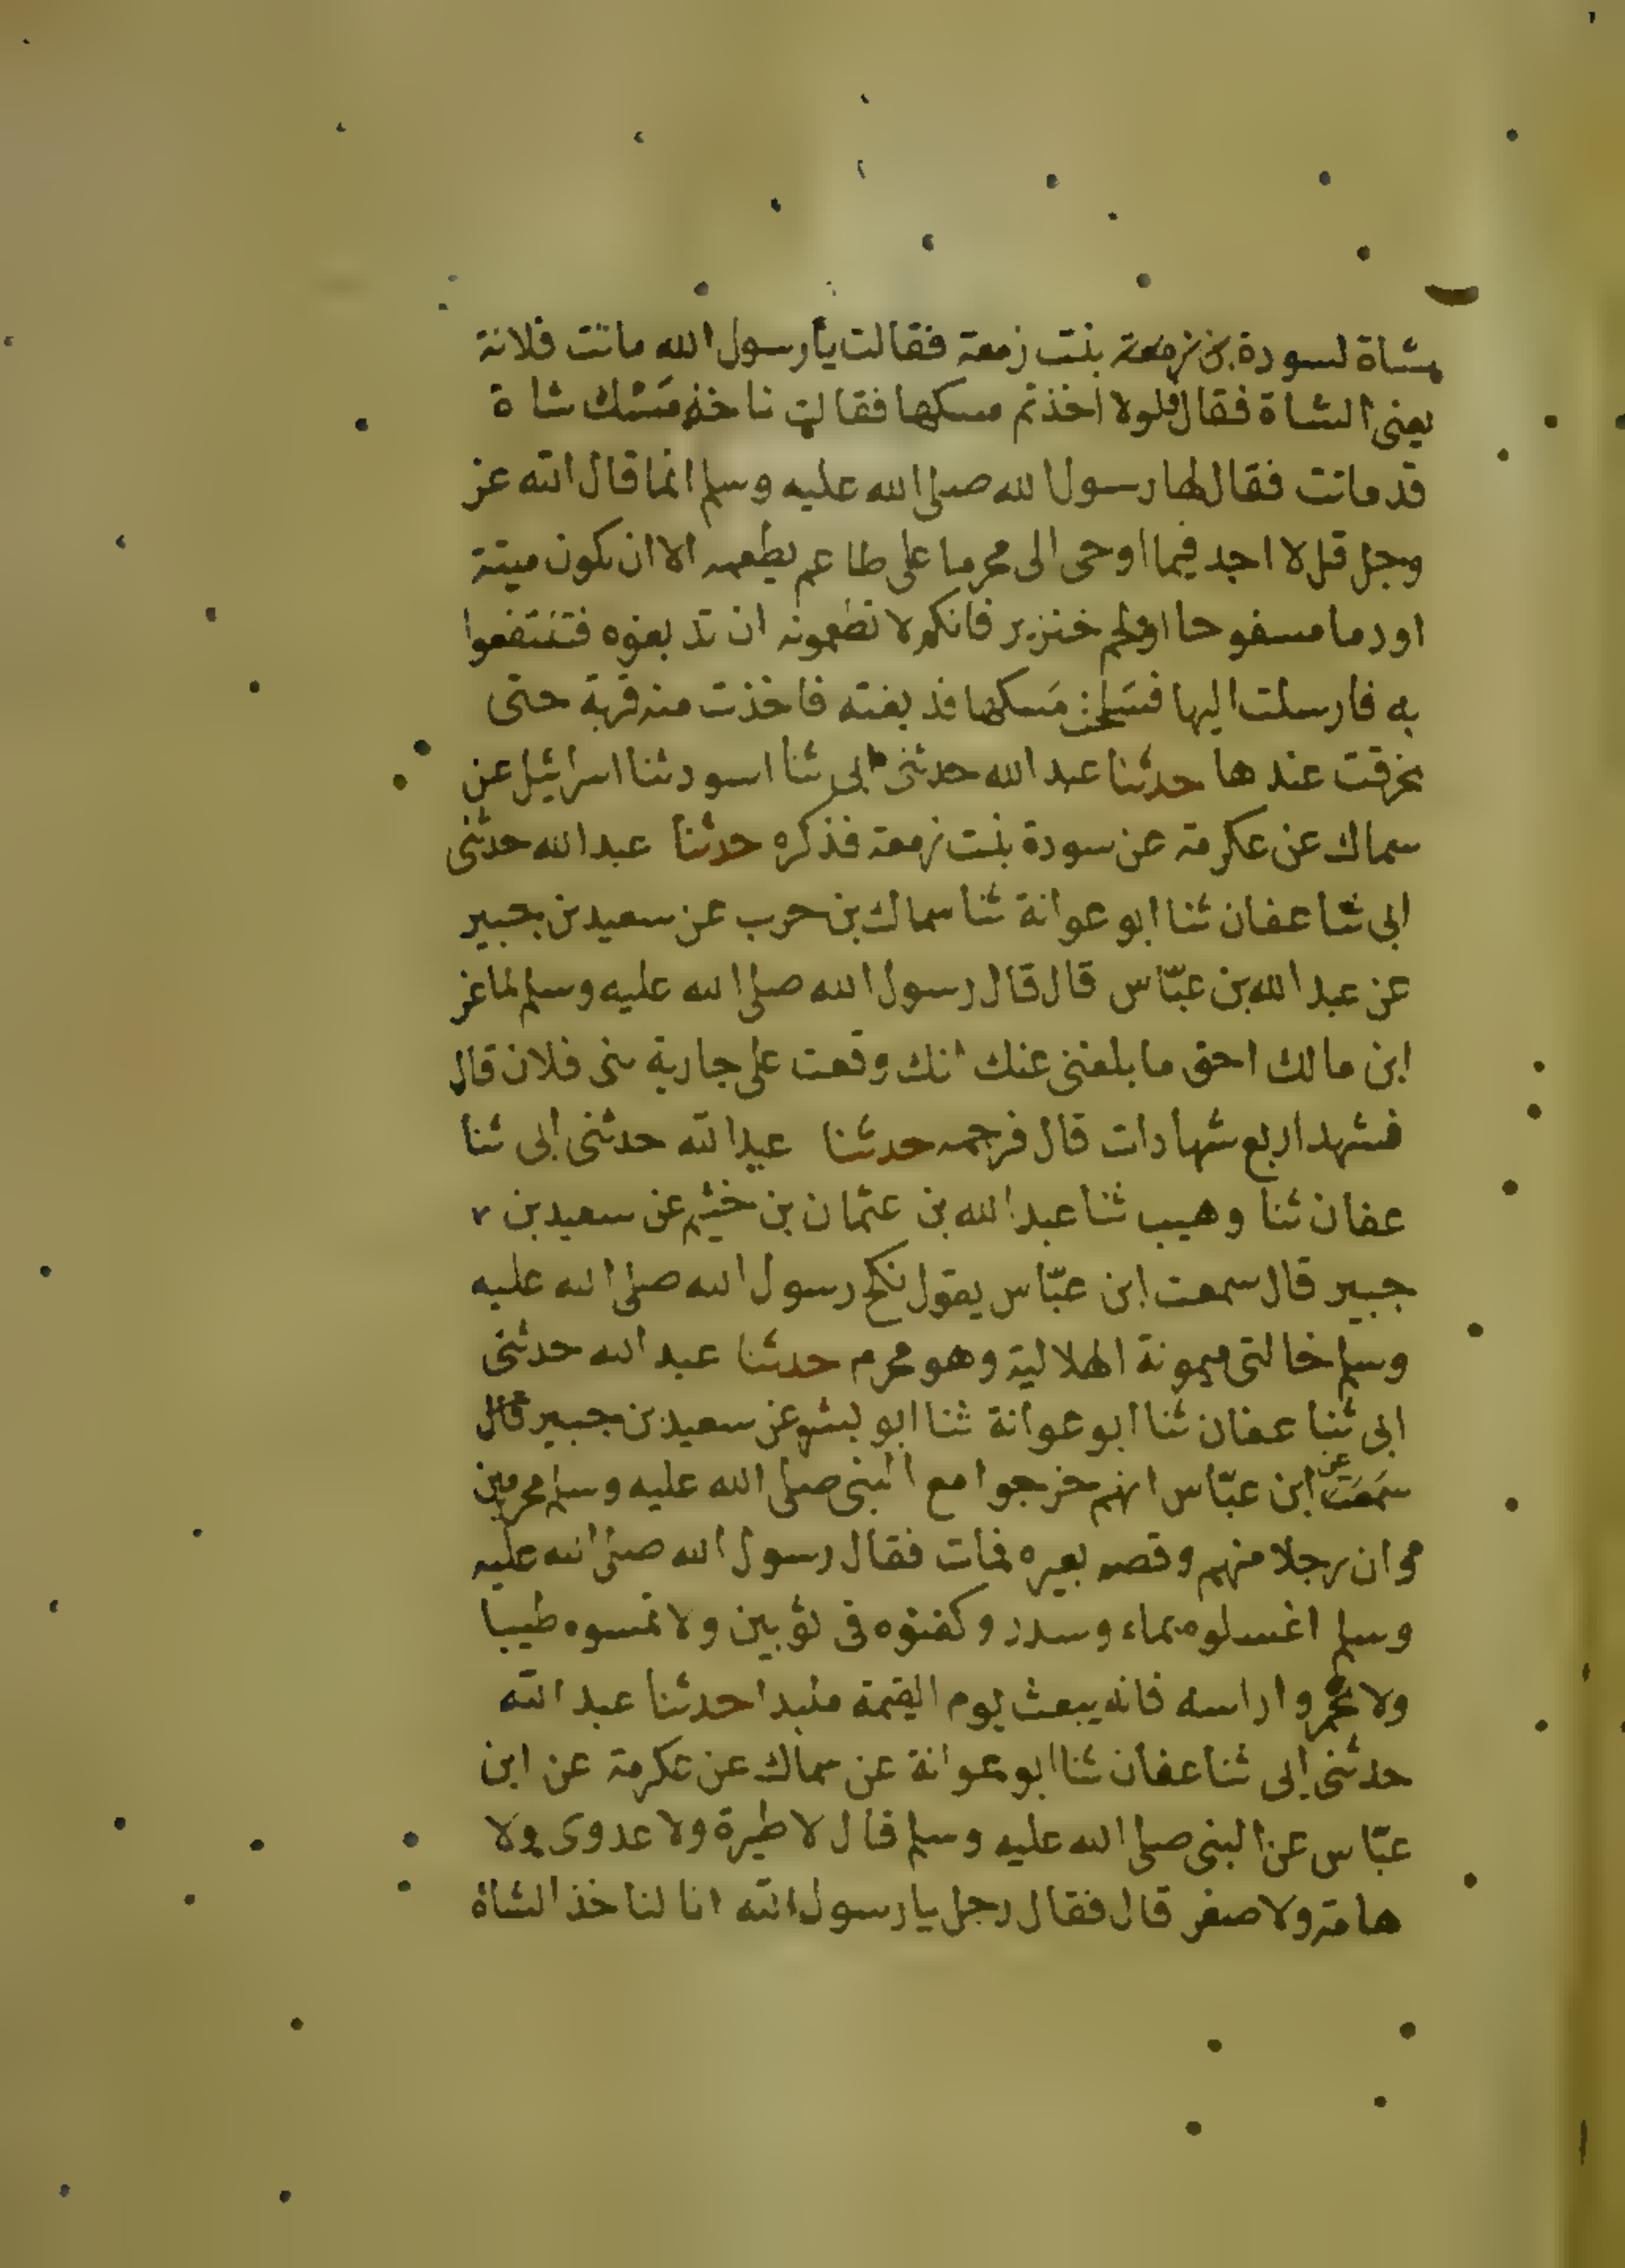 شاة لسودة بن زمعة بنت زمعة فقالت يا رسول الله ماتت فلانة
يعنى الشاة فقال فلولا اخذتم مسكها فقالت ناخذ مَسْك شاة
قد ماتت فقال لها رسول الله صلى الله عليه وسلم انما قال الله عز
وجل قل لا اجد فيما اوحى الى محرما على طاعم يطعمه الا ان يكون ميتة
او دما مسفوحا او لحم خنزير فانكم لا تطعمونه ان تدبغوه فتنتفعوا
به فارسلت اليها فسلخت مَسكها فدبغته فاخذت منه قربة حتى
تخرقت عندها حدثنا عبد الله حدثنى ابى ثنا اسود ثنا اسرائيل عن
سماك عن عكرمة عن سودة بنت زمعة فذكره حدثنا عبد الله حدثنى
ابى ثنا عفان ثنا ابو عوانة ثنا سماك بن حرب عن سعيد بن جبير
عن عبد الله بن عبّاس قال قال رسول الله صلى الله عليه وسلم لماعز
ابن مالك احق ما بلغنى عنك انك وقعت على جارية بنى فلان قال
فشهد اربع شهادات قال فرجمه حدثنا عبد الله حدثنى ابى ثنا
عفان ثنا وهيب ثنا عبد الله بن عثمان بن خثيم عن سعيد بن
جبير قال سمعت ابن عبّاس يقول نكح رسول الله صلى الله عليه
وسلم خالتى ميمونة الهلالية وهو محرم حدثنا عبد الله حدثنى
ابى ثنا عفان ثنا ابو عوانة ثنا ابو بشر عن سعيد بن جبير قال
سَمعَت عن ابن عبّاس انهم خرجوا مع النبى صلى الله عليه وسلم محرمين
وان رجلا منهم وقصه بعيره فمات فقال رسول الله صلى الله عليه
وسلم اغسلوه بماء وسدر وكفنوه فى ثوبين ولا تمسوه طيبا
ولا تخمروا راسه فانه يبعث يوم القيمة ملبدا حدثنا عبد الله
حدثنى ابى ثنا عفان ثنا ابو عوانة عن سماك عن عكرمة عن ابن
عبّاس عن النبى صلى الله عليه وسلم قال لا طيرة ولا عدوى ولا
هامة ولا صفر قال فقال رجل يا رسول الله انا لناخذ الشاة